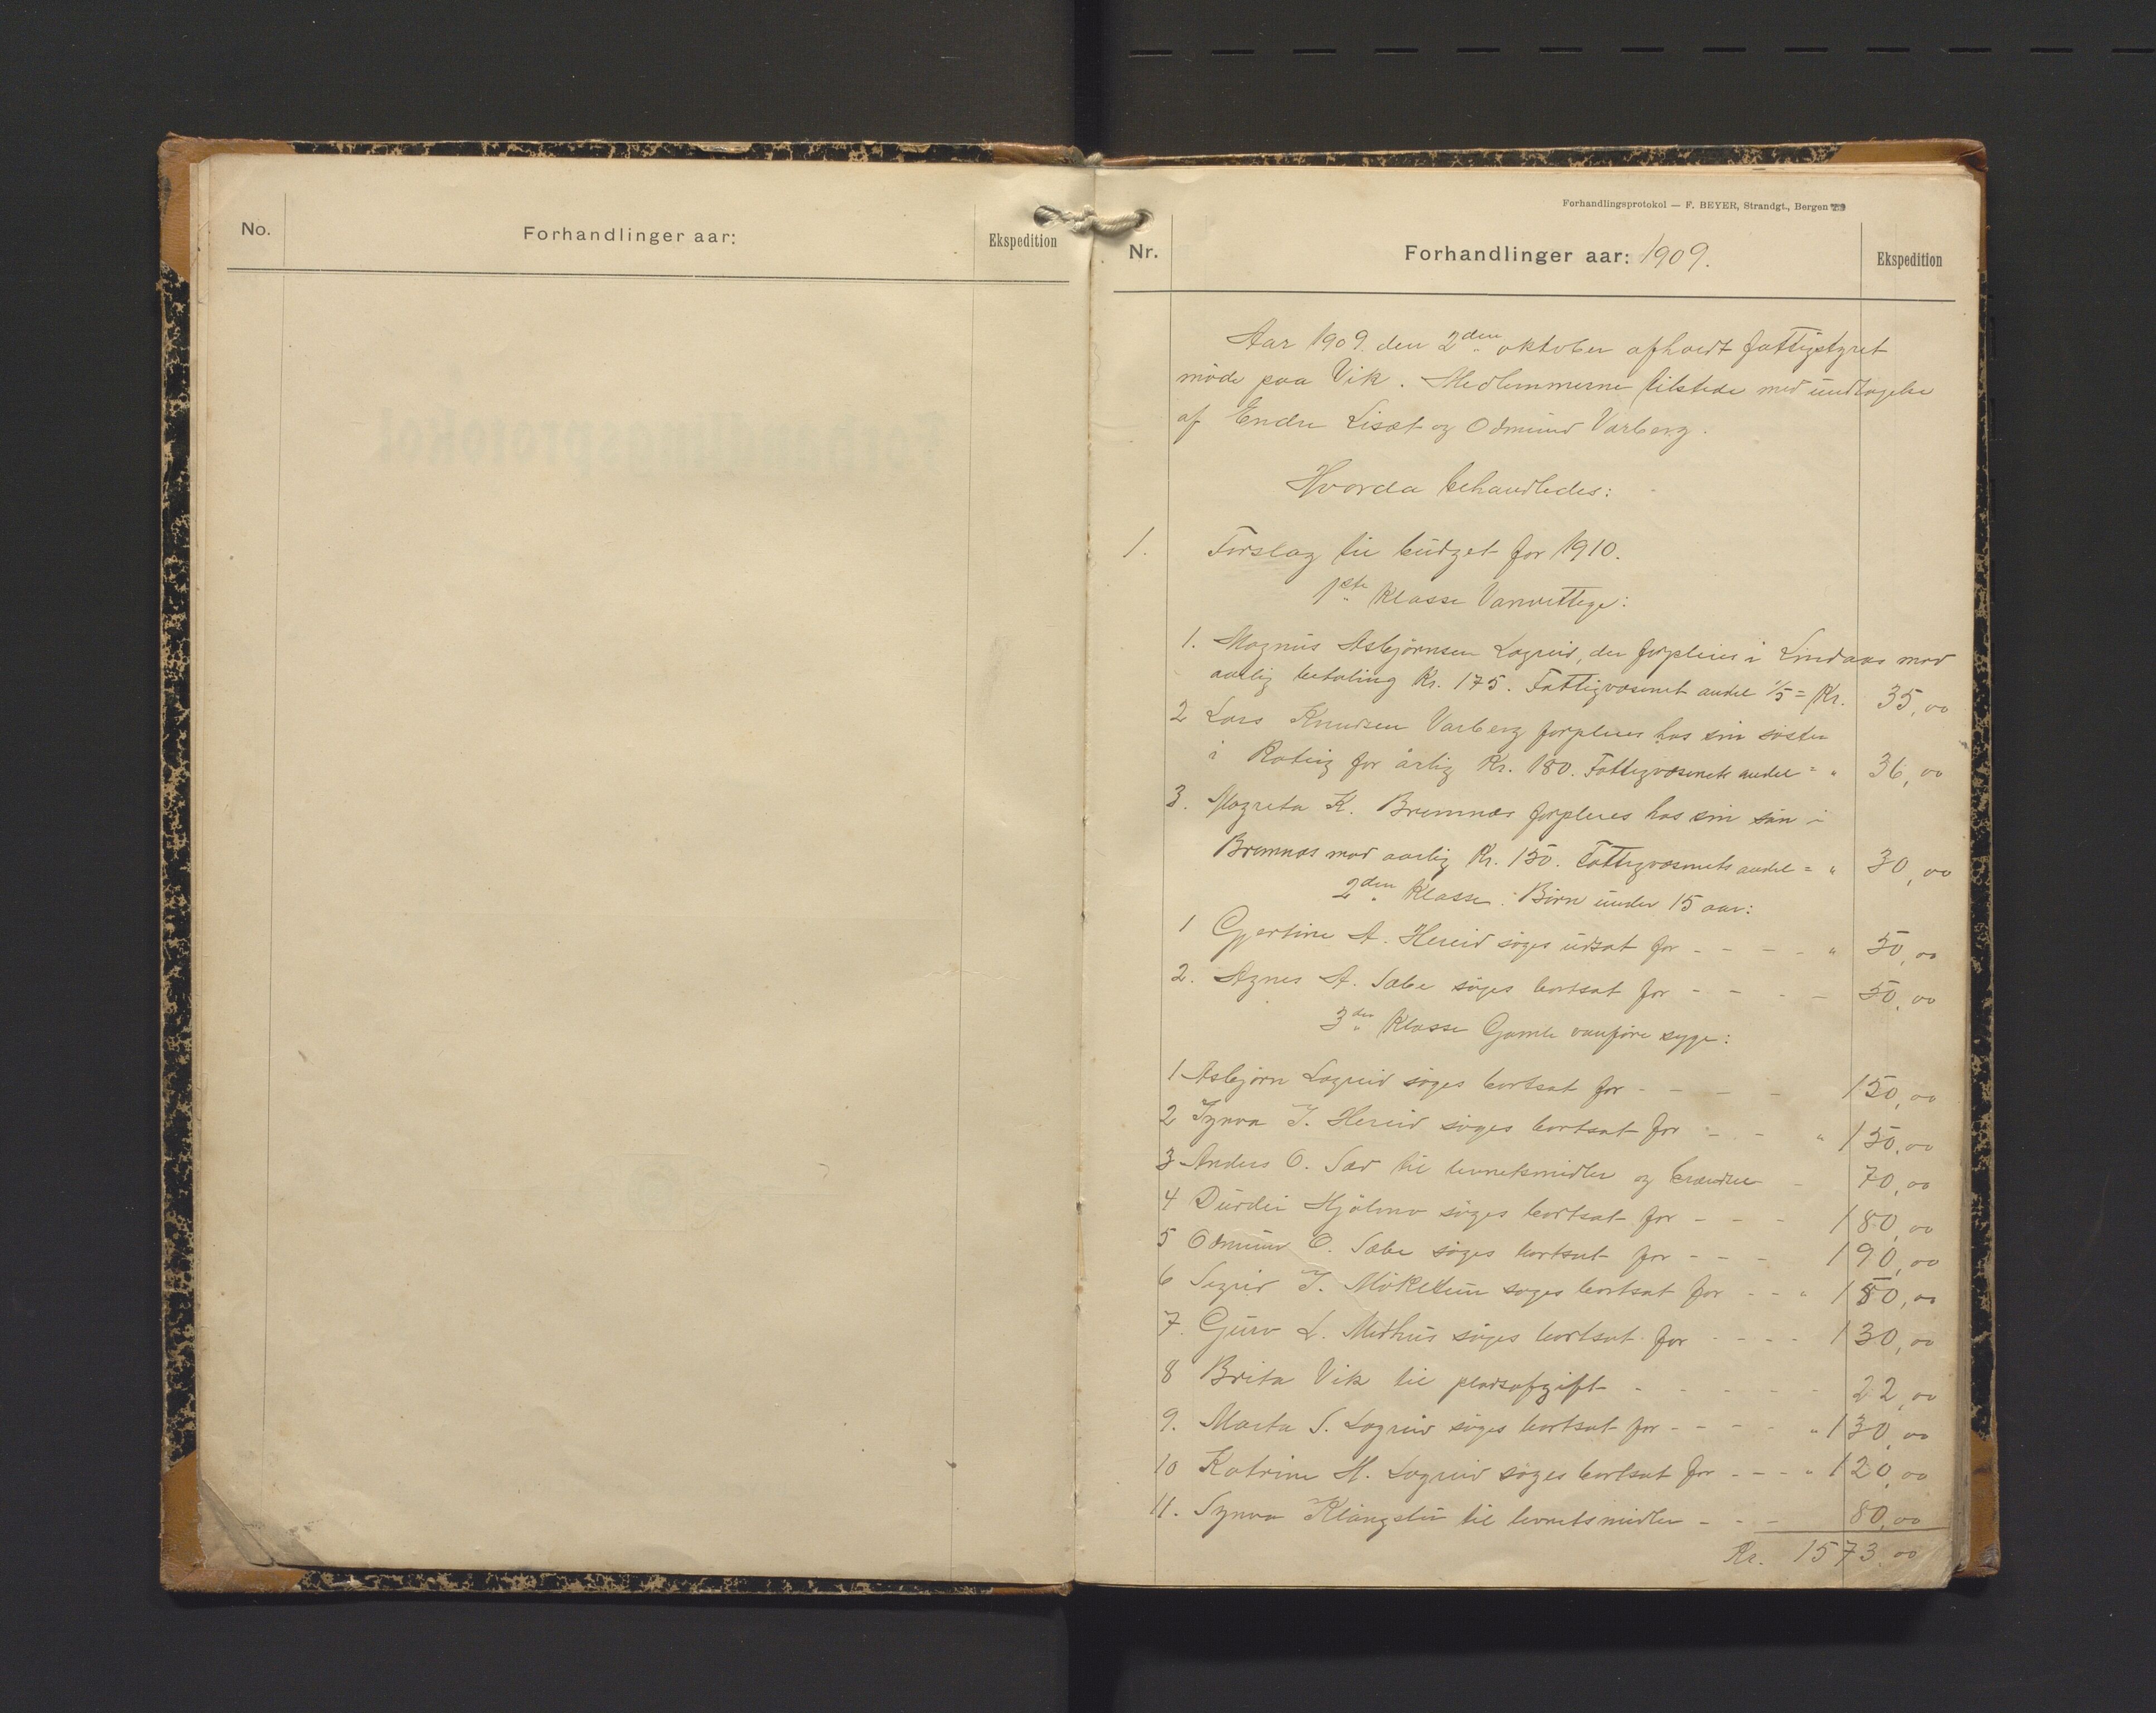 No.
Forhandlinger aar:
Ekspedition
Forhandlingsprotokol — F. BEYER, Strandgt., Bergen
Nr.
Forhandlinger aar: 1909.
Ekspedition
Aar 1909 den 2den oktober afholdt fattigstyret
møde paa Vik. Medlemmerne tilstede med undtagelse
af Endre Lisæt og Odmund Varberg.
Hvorda behandledes:
1. Forslag til budget for 1910.
1ste Klasse Vanvittige:
1. Magnus Asbjørnsen Lægreid, der forpleies i Lindaas mod
aarlig betaling Kr. 175. Fattigvæsenet andel 1/5 = Kr. 35,00
2 Lars Knudsen Varberg forpleies hos sin søster
i for årlig Kr. 180. Fattigvæsenets andel = " 36,00
3. Magreta K. Bremnes forpleies hos sin søn i
Bremnæs mod aarlig Kr. 150. Fattigvæsenets andel = " 30,00
2den Klasse: Børn under 15 aar:
1 Gjertine A. Hereid søges udsat for - - - - " 50,00
2. Agnes A. Sæbe søges bortsat for - - - - 50,00
3die Klasse Gamle vanføre syge:
1 Asbjørn Lægreid søges bortsat for - - - - 150,00
2 Synva J. Hereid søges bortsat for - - " 150,00
3 Anders O. Sæd til levnetsmidler og brændsel - 70,00
4 Durdei Hjølmo søges bortsat for - - - 180,00
5 Odmund O. Sæbe søges bortsat for - - - 190,00
6 Sigrid J. Mökletun søges bortsat for - - " 150,00
7. Guro L. Midthus søges bortsat for - - - - 130,00
8 Brita Vik til pladsafgift - - - - - - 22,00
9. Marta S. Lægreid søges bortsat for - - - - " 130,00
10 Katrine H. Lægreid søges bortsat for - - - " 120,00
11. Synva til levnetsmidler - - - 80,00
Kr. 1573,00